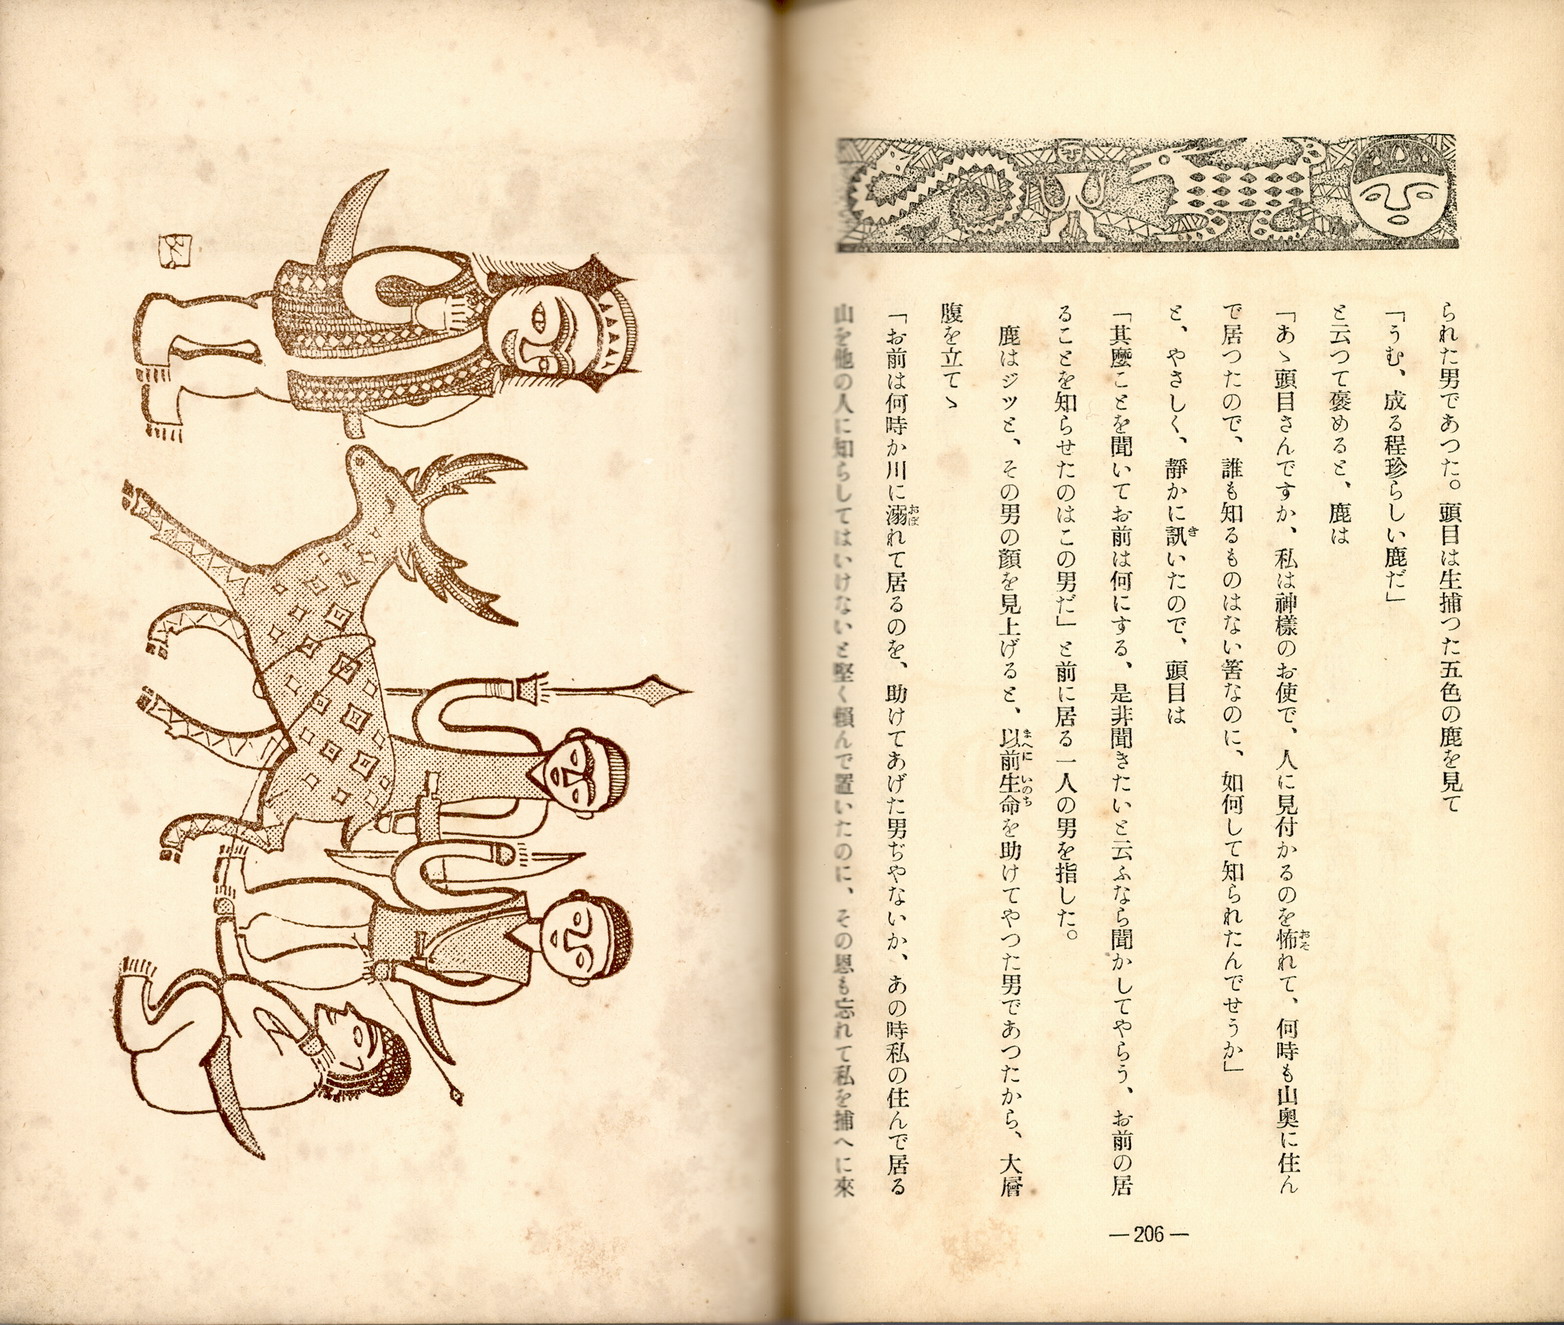 られた男であつた。頭目は生捕つた五色の鹿を見て
「うむ、成る程珍らしい鹿だ」
と云つて褒めると、鹿は
「あゝ頭目さんですか、私は神樣のお使で、人に見付かるのを怖れて、何時も山奥に住ん
で居つたので、誰も知るものはない筈なのに、如何して知られたんでせうか」
と、やさしく、靜かに訊いたので、頭目は
「其麼ことを聞いてお前は何にする、是非聞きたいと云ふなら聞かしてやらう、お前の居
ることを知らせたのはこの男だ」と前に居る一人の男を指した。
鹿はジツと、その男の顔を見上げると、以前生命を助けてやつた男であつたから、大層
腹を立てゝ
「お前は何時か川に溺れて居るのを、助けてあげた男ぢやないか、あの時私の住んで居る
山を他の人に知らしてはいけないと堅く頼んで置いたのに、その恩も忘れて私を捕へに來
—206—